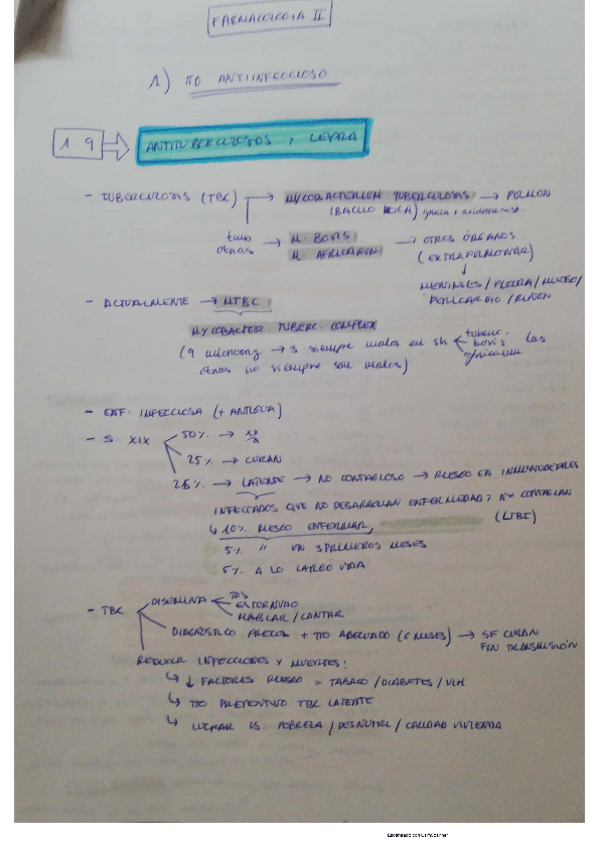 FARMACOLOGIA II
1) TTO ANTIINFECCIOSO
1.9 → ANTITUBERCULOSOS Y LEPRA
- TUBERCULOSIS (TBC) → MYCOBACTERIUM TUBERCULOSIS → PULMON
(BACILO KOCH)
otras → M. BOVIS → OTROS ÓRGANOS
M. AFRICANUM (EXTRAPULMONAR)
↓
MENINGES / PLEURA / HUESO /
PERICARDIO / RIÑON
- ACTUALMENTE → MTBC
MYCOBACTER. TUBERC. COMPLEX
(9 → 3 siempre malos en sh tuberc. bovis las
otras no siempre son malas)
- ENF. INFECCIOSA (+ ANTIGUA)
- S. XIX 50% →
25% → CURAN
25% → LATENTE → NO CONTAGIOSO → RIESGO EN INMUNODEPRES
INFECTADOS QUE NO DESARROLLAN ENFERMEDAD Y NO CONTAGIAN
↳ 10% RIESGO ENFERMAR, (LTBI)
5% " EN 3 PRIMEROS MESES
5% A LO LARGO VIDA
- TBC DISEMINA TOS
ESTORNUDO
HABLAR / CANTAR
DIAGNÓSTICO PRECOZ + TTO ADECUADO (6 MESES) → SE CURAN
FIN TRANSMISIÓN
REDUCIR INFECCIONES Y MUERTES:
↳ ↓ FACTORES RIESGO = TABACO / DIABETES / VIH
↳ TTO PREVENTIVO TBC LATENTE
↳ LUCHAR VS. POBREZA / DESNUTRI. / CALIDAD VIVIENDA
Escaneado con CamScanner